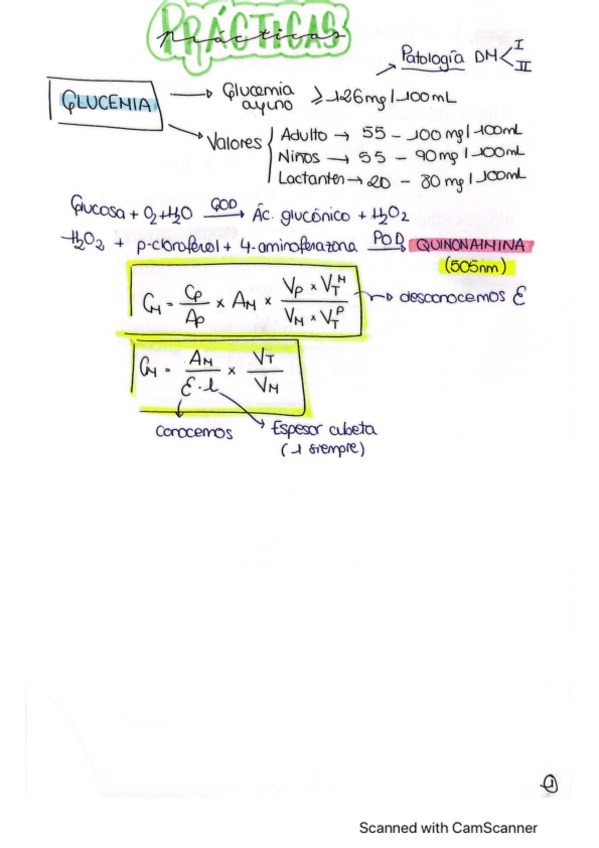 PRÁCTICAS
prácticas
Patología DM < I II
GLUCEMIA → Glucemia ayuno ≥ 126 mg / 100 mL
→ Valores { Adulto → 55 - 100 mg / 100 mL
Niños → 55 - 90 mg / 100 mL
Lactantes → 20 - 80 mg / 100 mL
Glucosa + O2 + H2O GOD → Ác. glucónico + H2O2
H2O2 + p-clorofenol + 4-aminoferazona POD → QUINONAIMINA
(505nm)
CM = CP / AP × AM × VP × VTM / VM × VTP → desconocemos Ɛ
CM = AM / Ɛ · l × VT / VM
conocemos
Espesor cubeta
(1 siempre)
1
Scanned with CamScanner